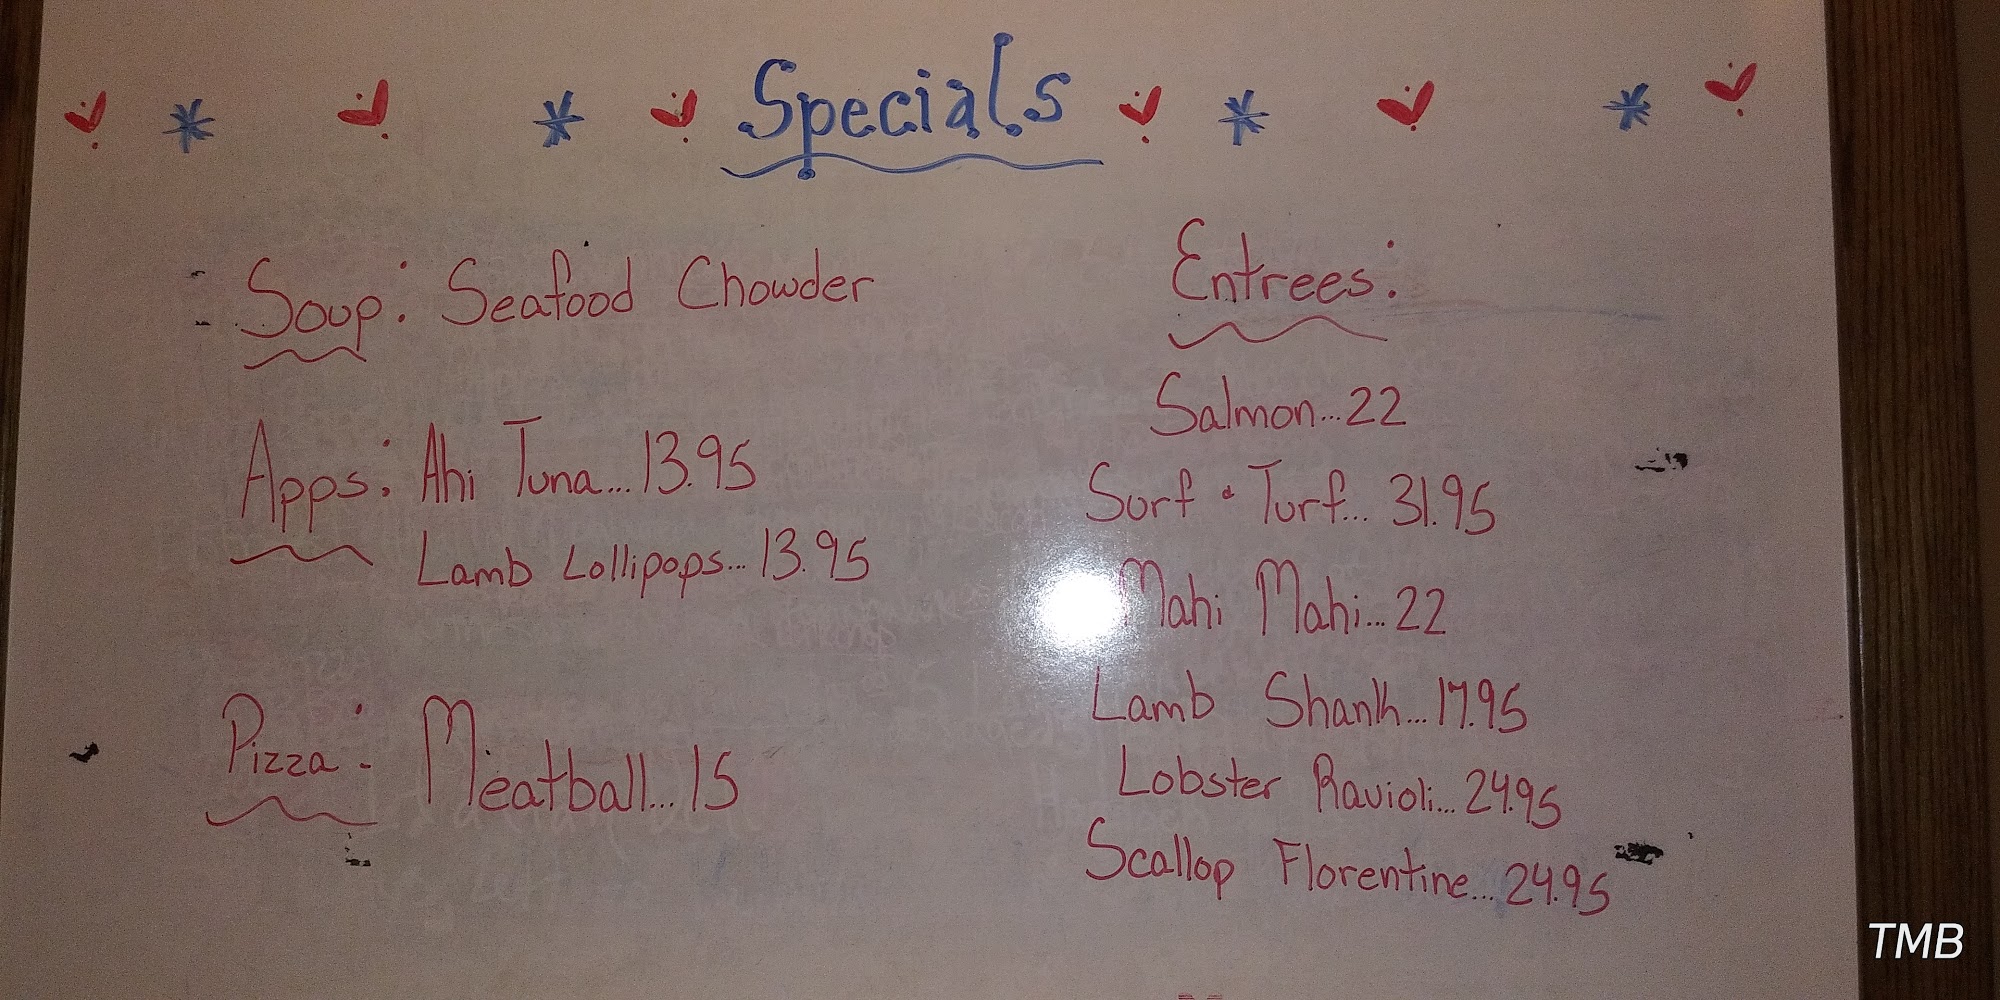 Specials
Soup: Seafood Chowder
Apps: Ahi Tuna...13.95
Lamb Lollipops...13.95
Pizza: Meatball...15
Entrees:
Salmon...22
Surf & Turf...31.95
Mahi Mahi...22
Lamb Shank...17.95
Lobster Ravioli...24.95
Scallop Florentine...24.95
TMB